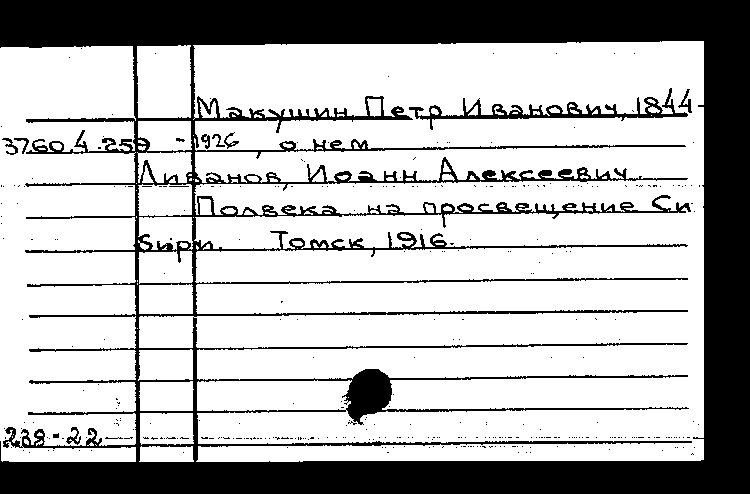 Макушин, Петр Иванович, 1844-
3760.4.259 -1926, о нем
Ливанов, Иоанн Алексеевич.
Полвека на просвещение Си
бири. Томск, 1916.
238-22